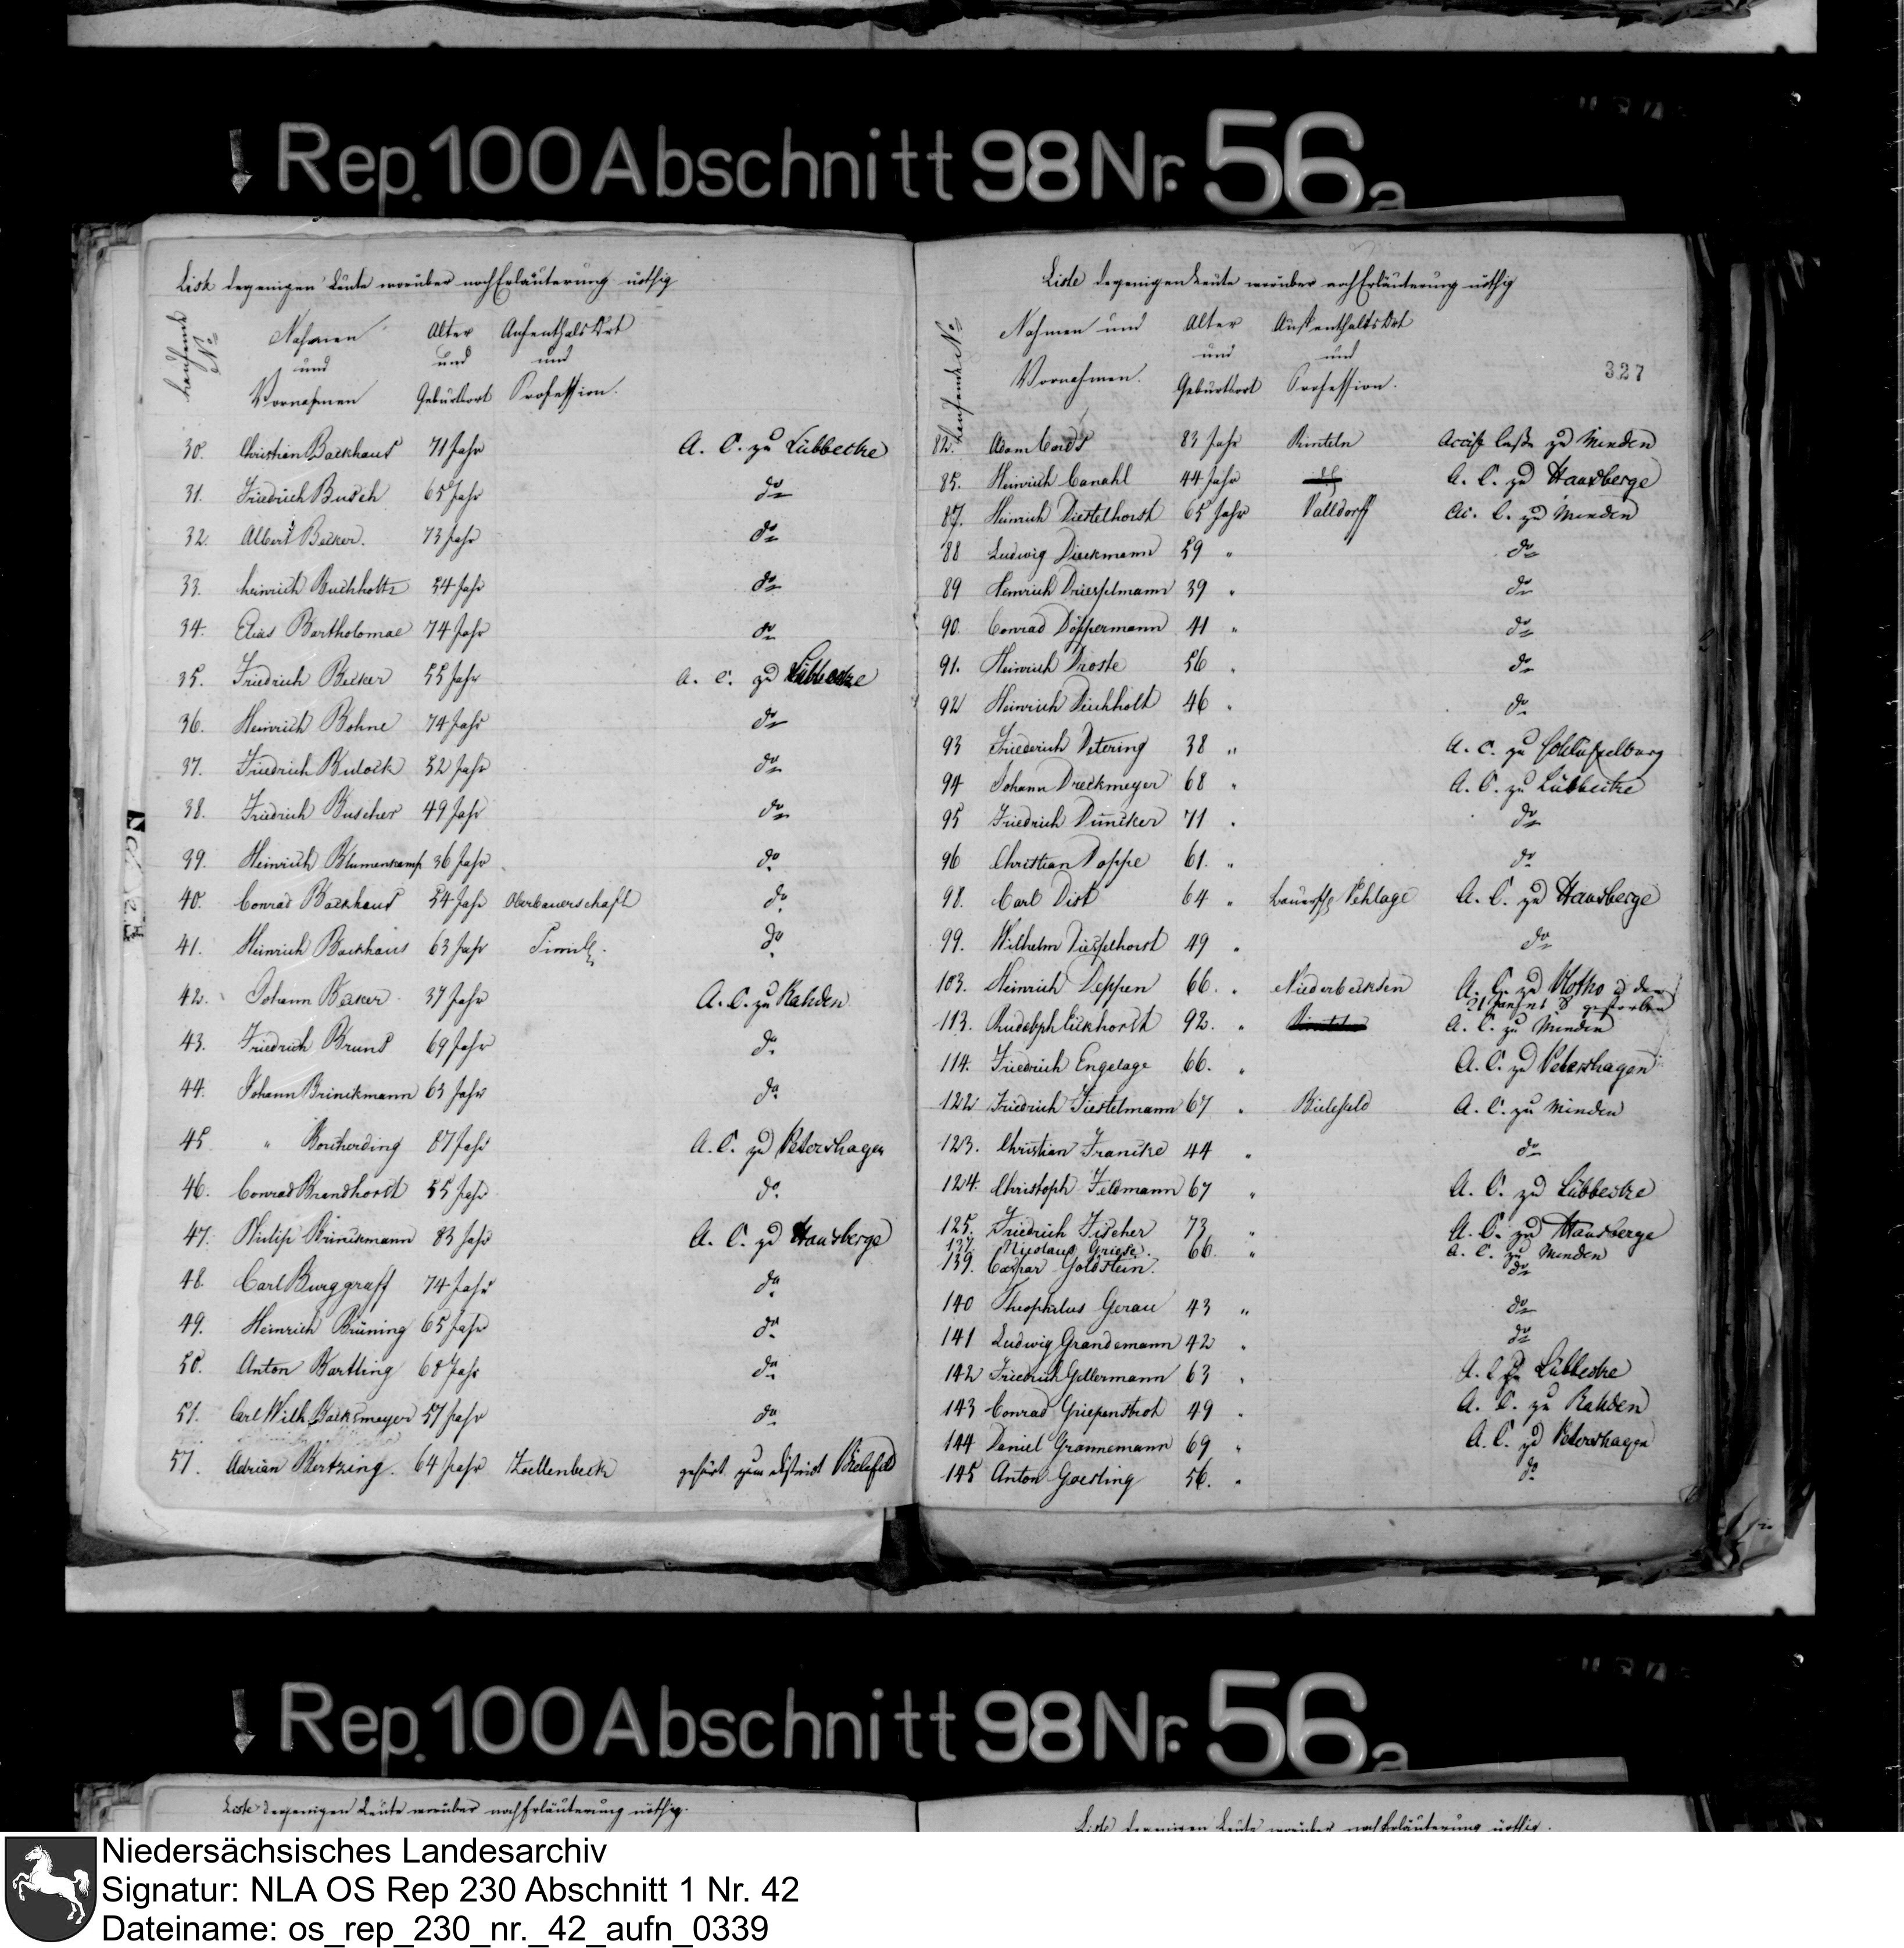 Rep. 100 Abschnitt 98 Nr. 56a
Liste derjenigen Leute worüber noch Erläuterung nöthig
Laufende No
Nahmen und Vornahmen
Alter und Geburtsort
Aufenthalts Ort und Profession.
30. Christian Backhaus 71 Jahr A. C. zu Lübbecke
31. Friedrich Busch 65 Jahr do
32. Albert Becker. 73 Jahr do
33. Heinrich Buchholtz 54 Jahr do
34. Elias Bartholomae 74 Jahr do
35. Friedrich Becker 55 Jahr A. C. zu Lübbecke
36. Heinrich Bohne 74 Jahr do
37. Friedrich Bulock 52 Jahr do
38. Friedrich Buscher 49 Jahr do
39. Heinrich Blumenkamp 36 Jahr do
40. Conrad Backhaus 54 Jahr Oberbauerschaft do
41. Heinrich Backhaus 63 Jahr do
42. Johann Becker 37 Jahr A. C. zu Rahden
43. Friedrich Bruns 69 Jahr do
44. Johann Brinckmann 63 Jahr do
45. " Borcherding 87 Jahr A. C. zu Petershagen
46. Conrad Brandhorst 55 Jahr do
47. Philip Brinckmann 83 Jahr A. C. zu Hausberge
48. Carl Burggraff 74 Jahr do
49. Heinrich Brüning 65 Jahr do
50. Anton Bartling 68 Jahr do
51. Carl Wilh. Backsmeyer 57 Jahr do
57. Adrian Bertzing. 64 Jahr gehört zum district Bielefeld
Liste derjenigen Leute worüber noch Erläuterung nöthig
327
Laufende No
Nahmen und Vornahmen.
Alter und Geburtsort
Aufenthalts Ort und Profession.
82. Adam Cords 83 Jahr Rinteln Accise Casse zu Minden
85. Heinrich Canahl 44 Jahr A. C. zu Hausberge
87. Heinrich Diestelhorst 65 Jahr Valldorff Ac. C. zu Minden
88 Ludwig Dieckmann 59 " do
89 Heinrich Driesselmann 39 " do
90. Conrad Döppermann 41 " do
91. Heinrich Droste 56 " do
92 Heinrich Dieckholt 46 " do
93 Friederich Detering 38 " A. C. zu Schlüsselburg
94 Johann Dreckmeyer 68 " A. C. zu Lübbecke
95 Friedrich Duncker 71 " do
96 Christian Doppe 61. " do
98. Carl Dist 64 " Bauersch. Pehlage A. C. zu Hausberge
99. Wilhelm Diesselhorst 49 " do
103. Heinrich Deppen 66. " Niederbecksen A. C. zu Vlotho d den
21 gestorben
113. Rudolph Eickhorst 92. " A. C. zu Minden
114. Friedrich Engelage 66. " A. C. zu Petershagen
122 Friedrich Fiestelmann 67 " Bielefeld A. C. zu Minden
123. Christian Francke 44 " do
124. Christoph Feldmann 67 " A. C. zu Lübbecke
125. Friedrich Fischer 73 " A. C. zu Hausberge
137. Nicolaus Griese. 66. " A. C. zu Minden
139. Caspar Goldstein. do
140 Theophilus Gerau 43 " do
141 Ludwig Grandemann 42 " do
142 Friedrich Gellermann 63 " A. C. zu Lübbecke
143 Conrad Griepenstroh 49 " A. C. zu Rahden
144 Daniel Grannemann 69 " A. C. zu Petershagen
145 Anton Goesling 56. " do
Rep. 100 Abschnitt 98 Nr. 56a
Liste derjenigen Leute worüber noch Erläuterung nöthig.
Liste derjenigen Leute worüber noch Erläuterung nöthig.
Niedersächsisches Landesarchiv
Signatur: NLA OS Rep 230 Abschnitt 1 Nr. 42
Dateiname: os_rep_230_nr._42_aufn_0339